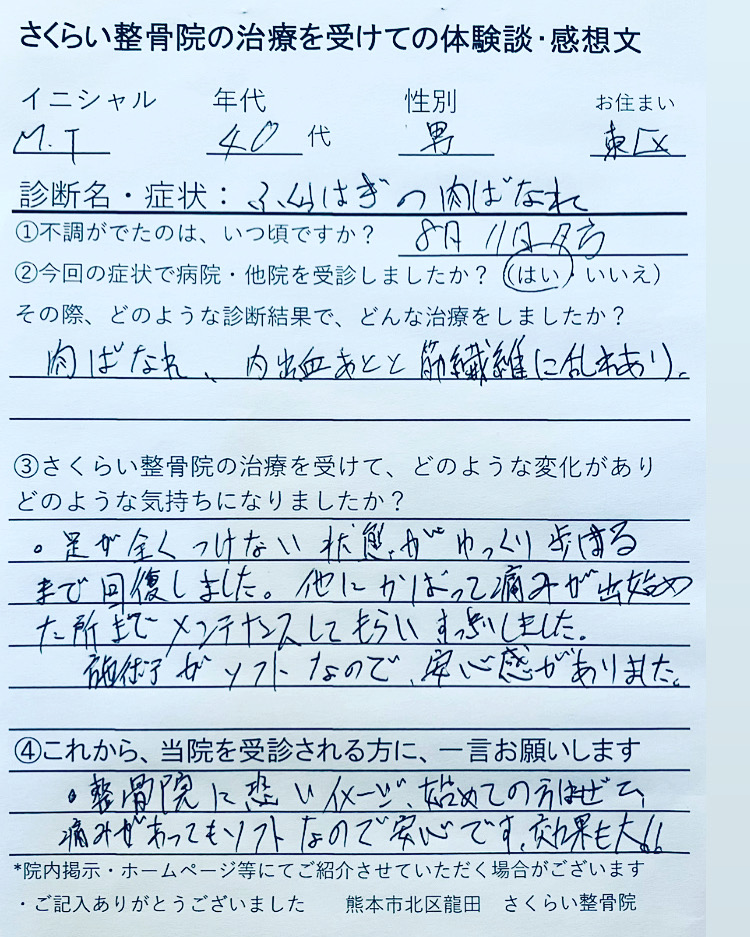 さくらい整骨院の治療を受けての体験談・感想文
イニシャル 年代 性別 お住まい
M.T 40 代 男 東区
診断名・症状：ふくらはぎの肉ばなれ
①不調がでたのは、いつ頃ですか？ 8月11日夕方
②今回の症状で病院・他院を受診しましたか？（はい・いいえ）
その際、どのような診断結果で、どんな治療をしましたか？
肉ばなれ、内出血あとと筋繊維に乱れあり。
③さくらい整骨院の治療を受けて、どのような変化があり
どのような気持ちになりましたか？
。足が全くつけない状態がゆっくり歩ける
まで回復しました。他にかばって痛みが出始め
た所までメンテナンスしてもらいすっきりしました。
施術がソフトなので、安心感がありました。
④これから、当院を受診される方に、一言お願いします
。整骨院に悪いイメージ、始めての方はぜひ、
痛みがあってもソフトなので安心です、効果も大!!
*院内掲示・ホームページ等にてご紹介させていただく場合がございます
・ご記入ありがとうございました 熊本市北区龍田 さくらい整骨院